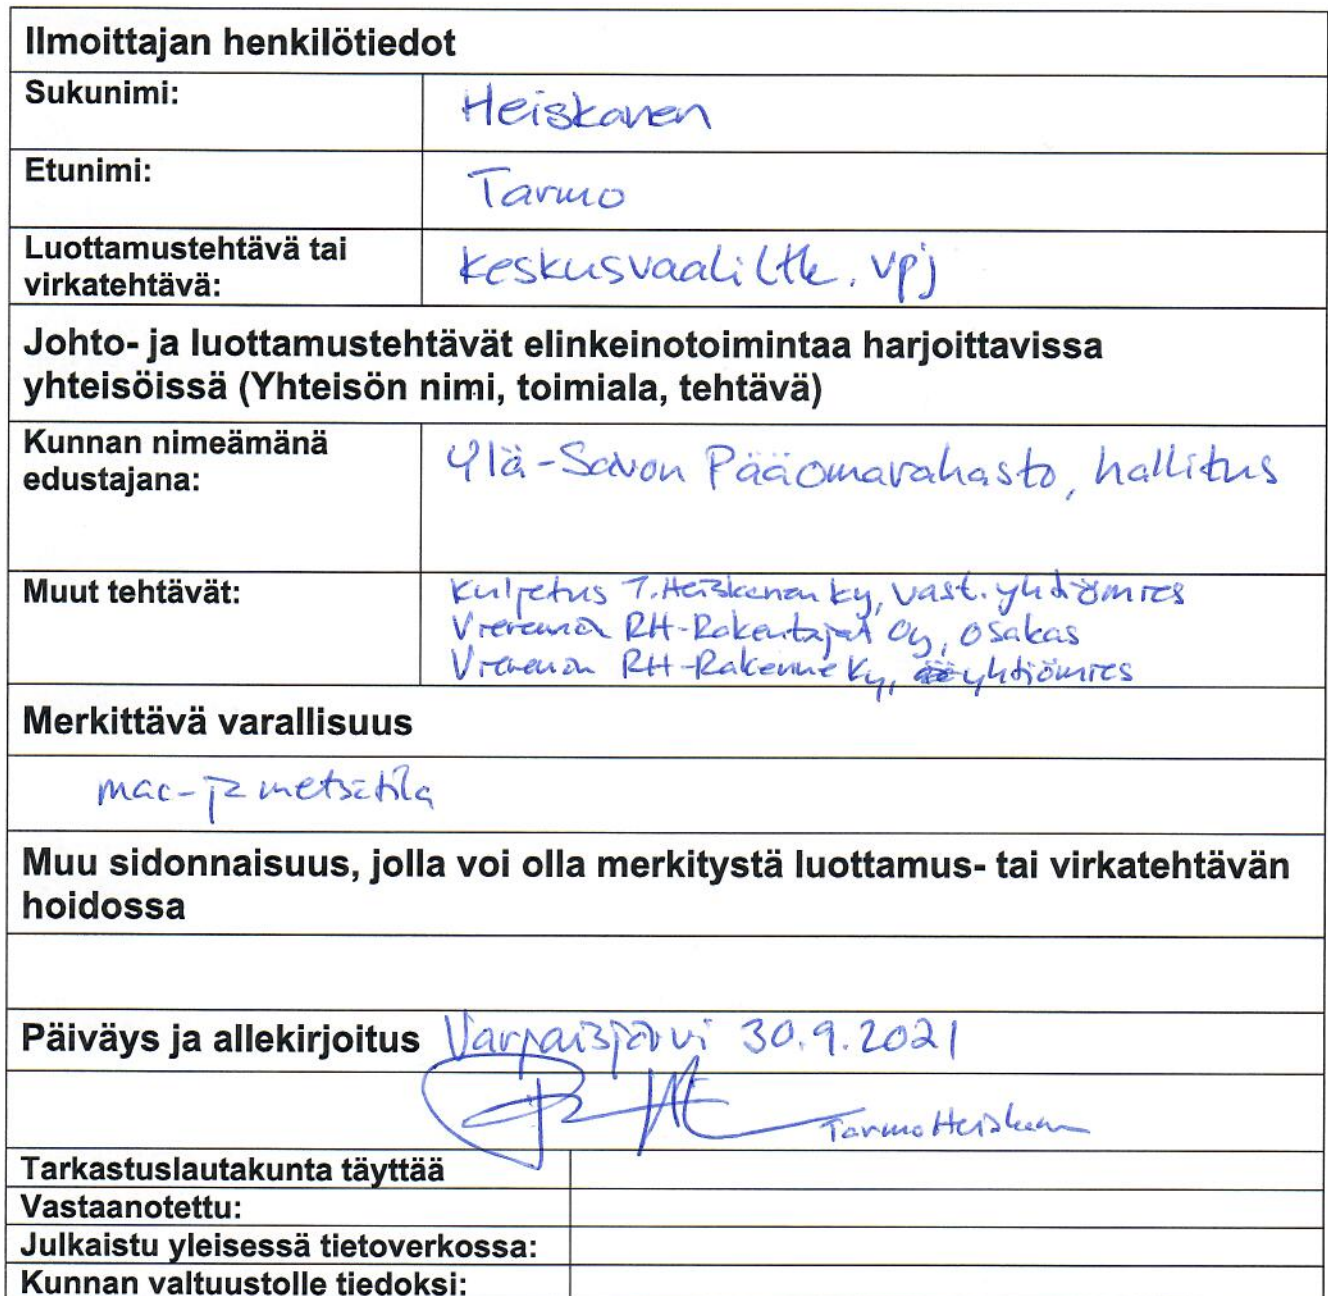 Ilmoittajan henkilötiedot
Sukunimi: Heiskanen
Etunimi: Tarmo
Luottamustehtävä tai
virkatehtävä: Keskusvaaliltk. vpj
Johto- ja luottamustehtävät elinkeinotoimintaa harjoittavissa
yhteisöissä (Yhteisön nimi, toimiala, tehtävä)
Kunnan nimeämänä
edustajana: Ylä-Savon Pääomarahasto, hallitus
Muut tehtävät: Kuljetus T. Heiskanen Ky, vast. yhtiömies
Vieremän RH-Rakentajat Oy, osakas
Vieremän RH-Rakenne Ky, yhtiömies
Merkittävä varallisuus
maa- ja metsätila
Muu sidonnaisuus, jolla voi olla merkitystä luottamus- tai virkatehtävän
hoidossa
Päiväys ja allekirjoitus Varpaisjärvi 30.9.2021
Tarmo Heiskanen
Tarkastuslautakunta täyttää
Vastaanotettu:
Julkaistu yleisessä tietoverkossa:
Kunnan valtuustolle tiedoksi: